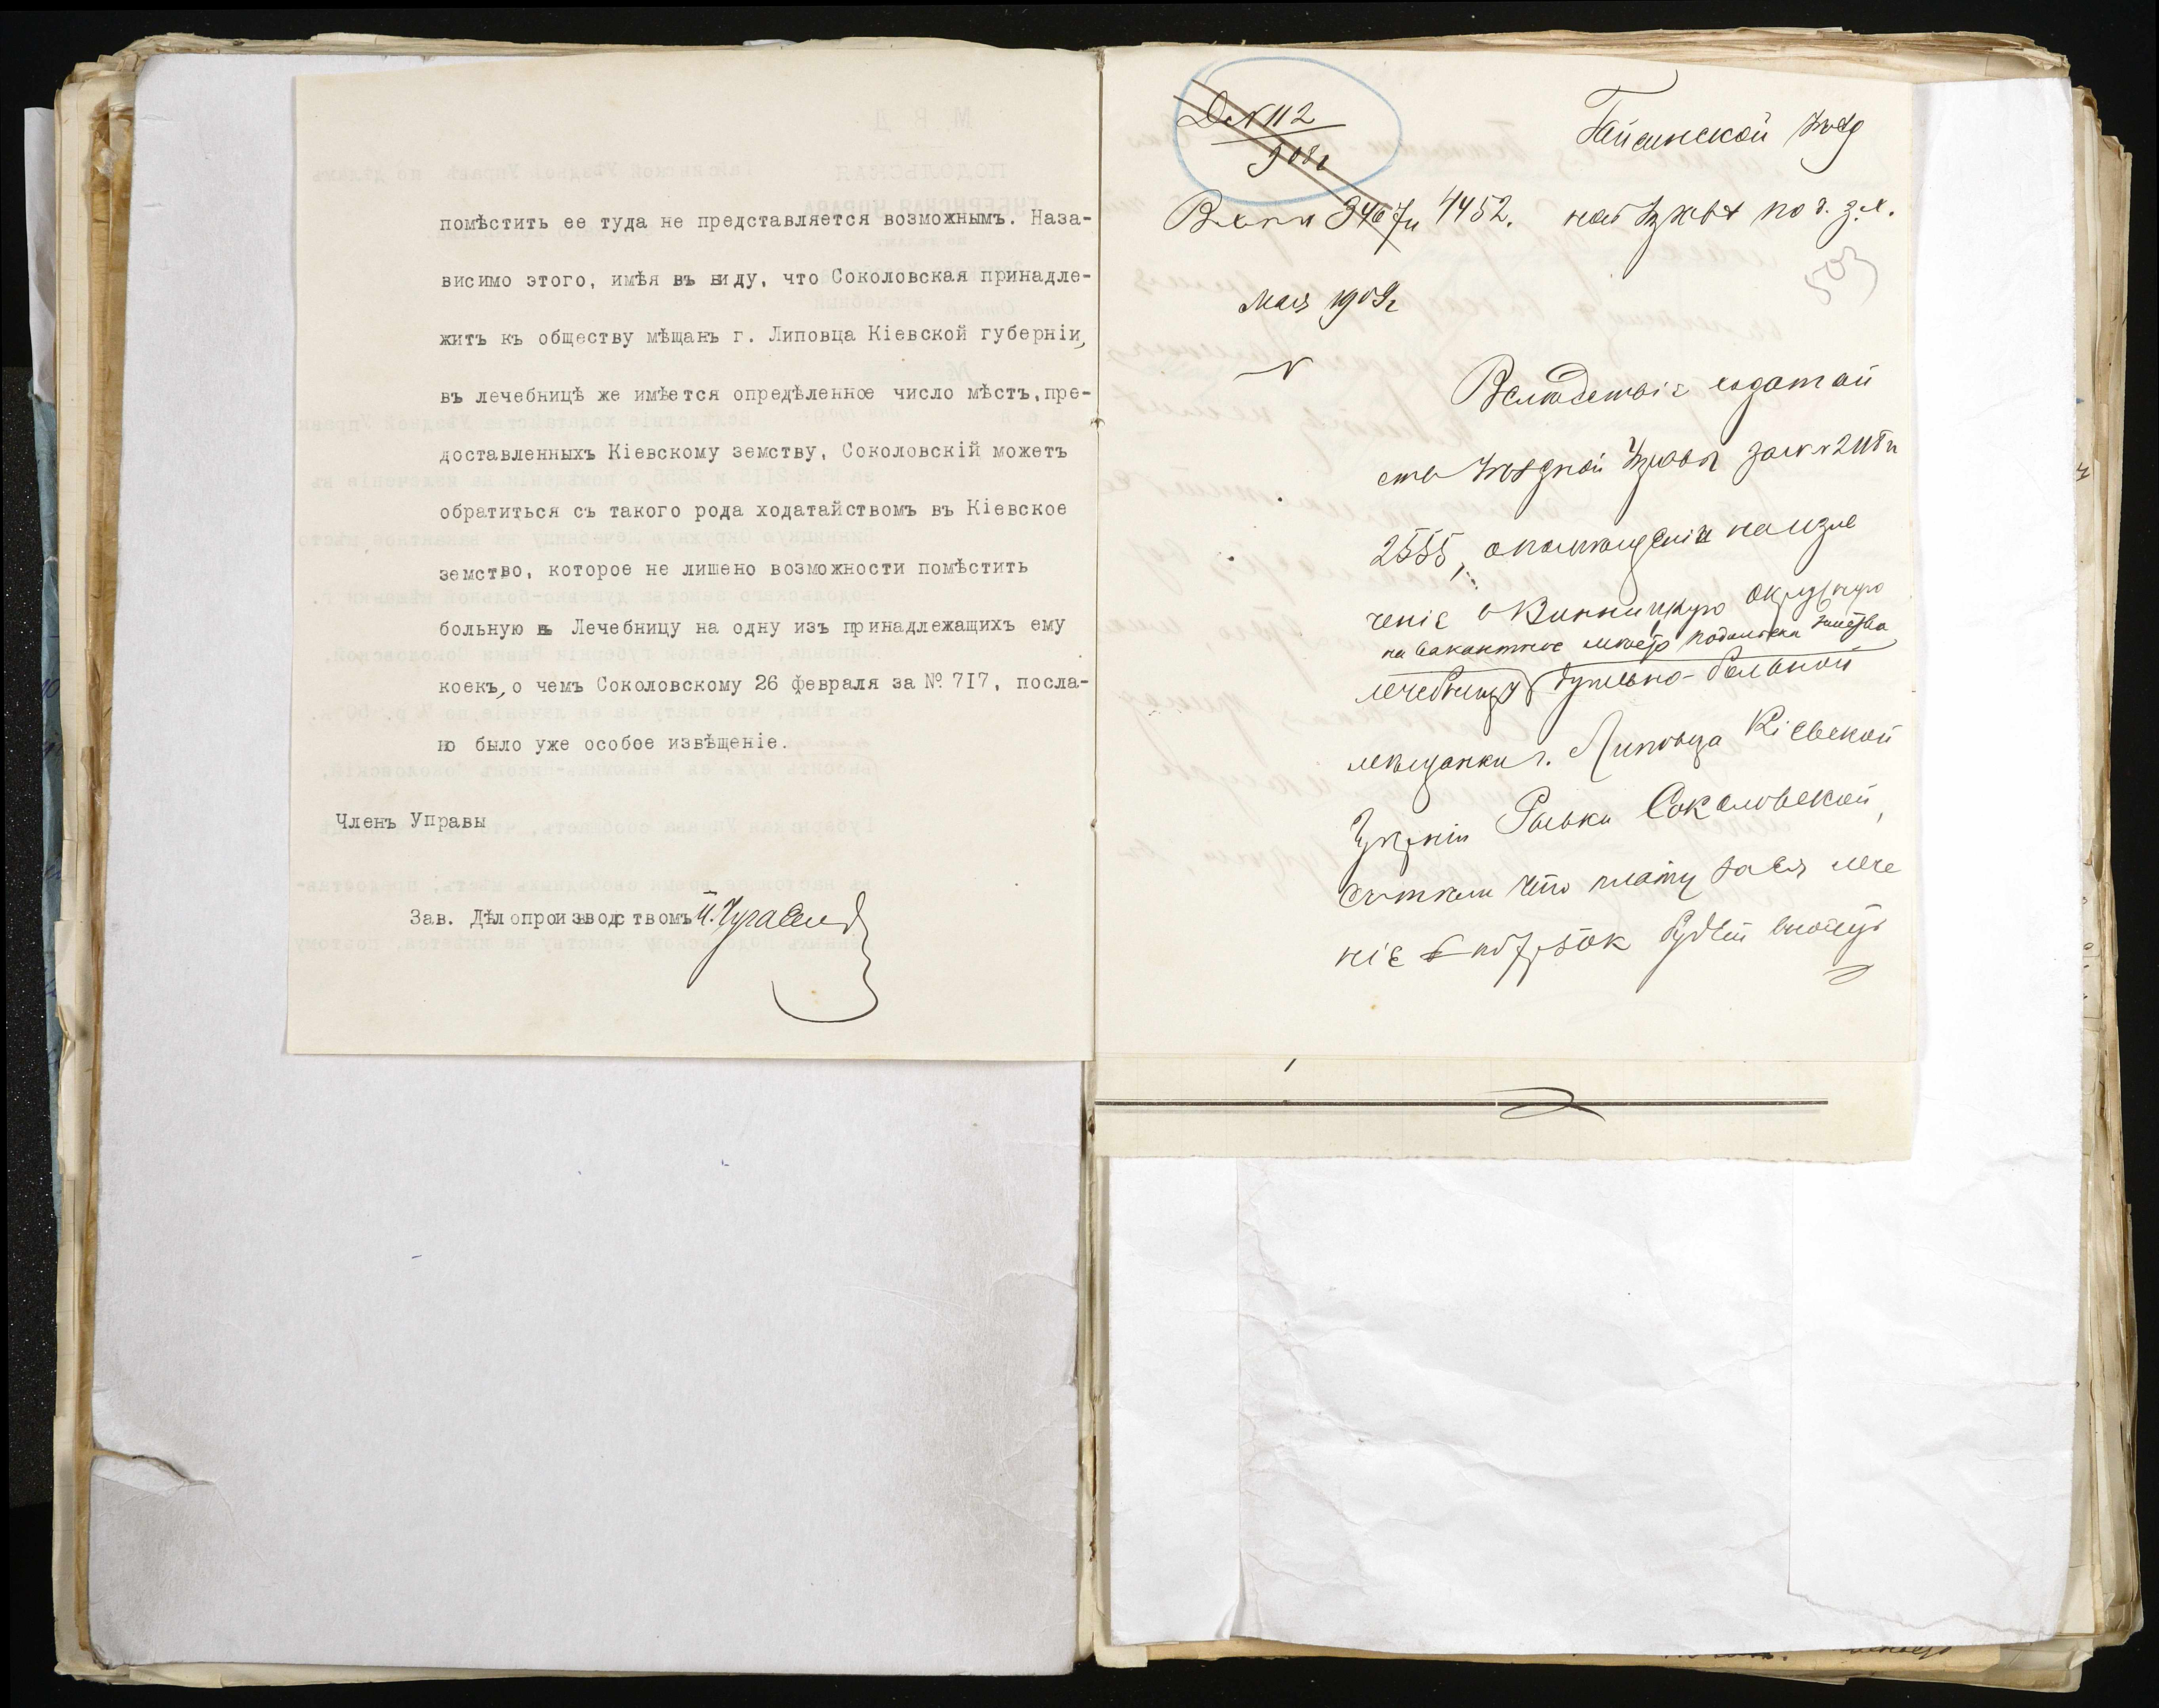 помѣстить ее туда не представляется возможнымъ. Неза-
висимо этого, имѣя въ виду, что Соколовская принадле-
житъ къ обществу мѣщанъ г. Липовца Кіевской губерніи,
въ лечебницѣ же имѣется опредѣленное число мѣстъ, пре-
доставленныхъ Кіевскому земству, Соколовскій можетъ
обратиться съ такого рода ходатайствомъ въ Кіевское
земство, которое не лишено возможности помѣстить
больную въ Лечебницу на одну изъ принадлежащихъ ему
коекъ, о чемъ Соколовскому 26 февраля за № 717, посла-
но было уже особое извѣщеніе.
Членъ Управы
Зав. Дѣлопроизводствомъ
Д. N 112
908г
Вх. 3467 и 4452.
Мая 1909г
N
Гайсинской Уѣзд
ной Управѣ по д. з. х.
503
Вслѣдствіе ходатай
ства Уѣздной Управы за №№ 2118 и
2555, о помѣщеніи на изле
ченіе въ Винницкую окружную
на вакантное мѣсто Подольска земства
лечебницу душевно-больной
мѣщанки г. Липовца Кіевской
губерніи Ривки Соколовской,
съ тѣмъ что плату за ея лече
ніе по 7 р. 50 к будетъ вносить